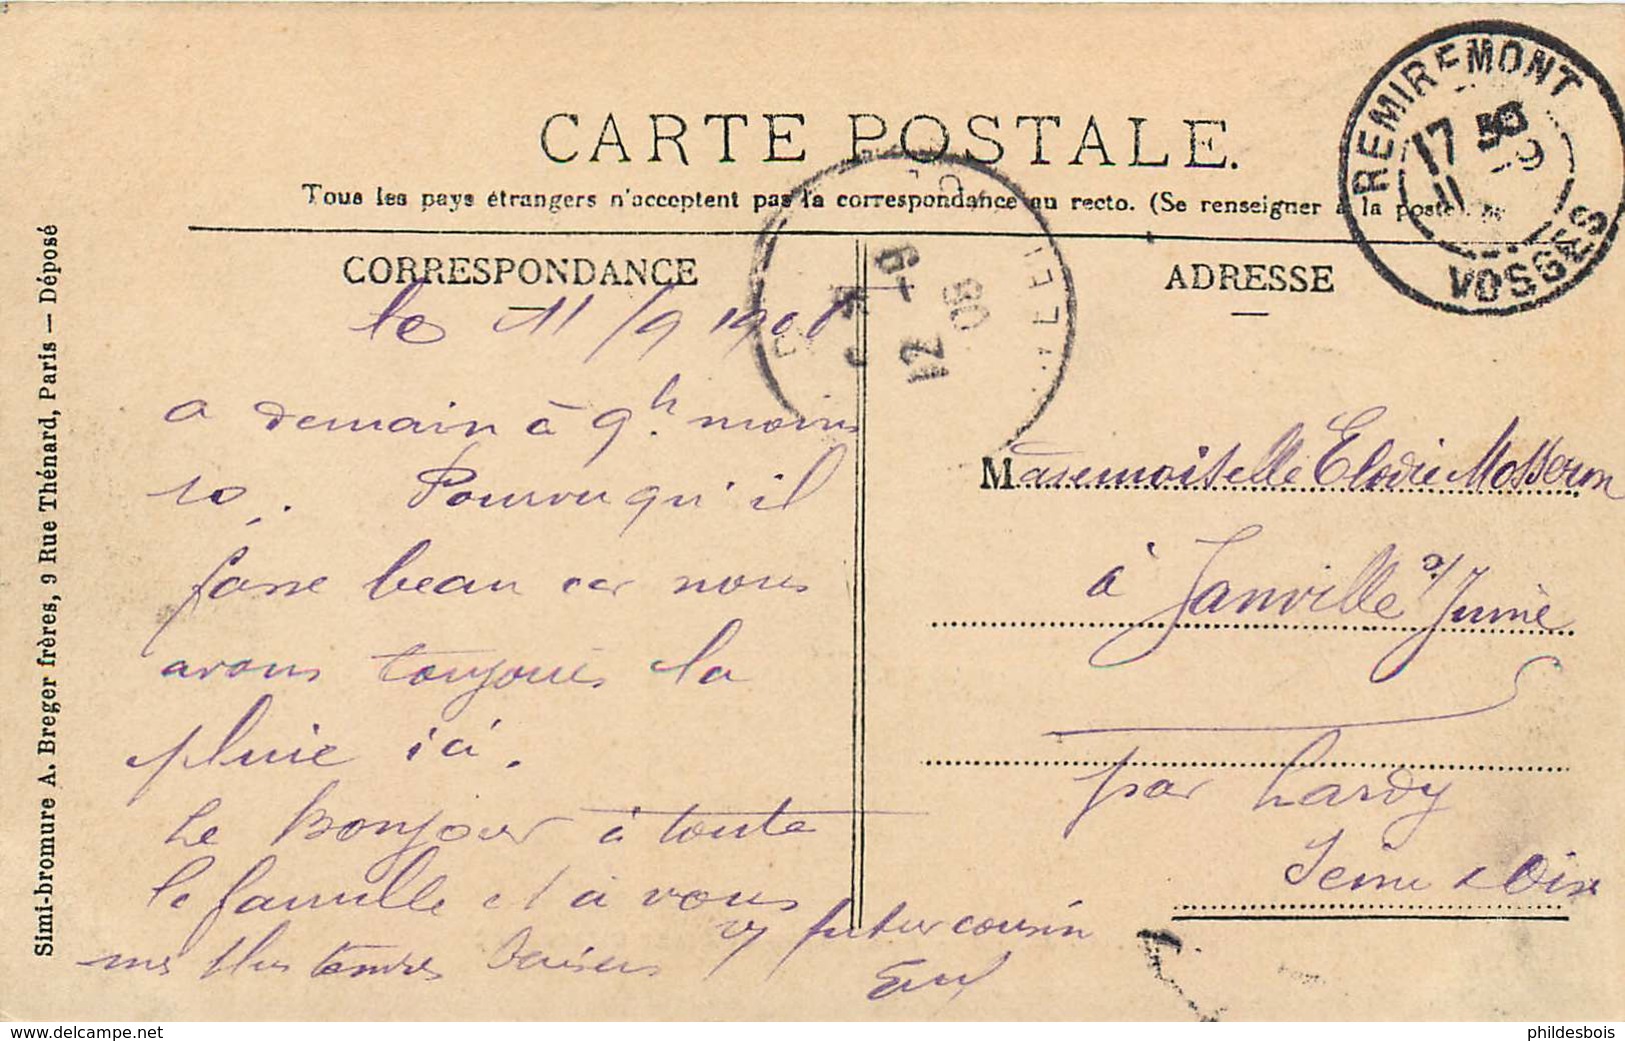 CARTE POSTALE.
Tous les pays étrangers n'acceptent pas la correspondance au recto. (Se renseigner à la poste).
CORRESPONDANCE
le 11/9 190
a demain à 9h. moins
10. Pourvu qu'il
fasse beau car nous
avons toujours la
pluie ici.
Le bonjour à toute
la famille et à vous
mes plus tendres baisers
futur cousin
ADRESSE
Mademoiselle Elodie
à Janville s/ Juine
par Lardy
Seine & Oise
REMIREMONT
17 30
11 -9
VOSGES
12 -9
Simi-bromure A. Breger frères, 9 Rue Thénard, Paris — Déposé
www.delcampe.net
phildesbois